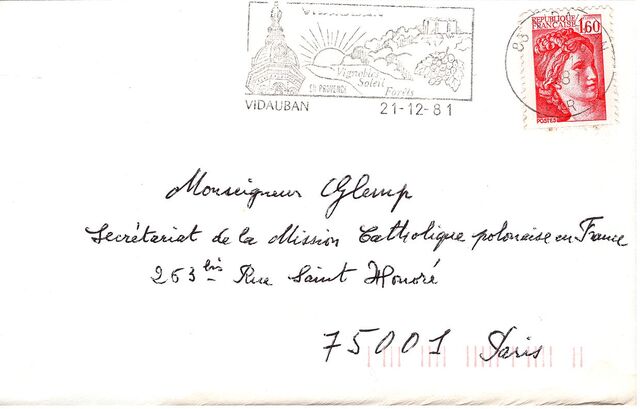 VIDAUBAN
Vignobles
Soleil
Forêts
EN PROVENCE
VIDAUBAN 21-12-81
REPUBLIQUE
FRANÇAISE 1,60
POSTES
83
Monseigneur Glemp
Secrétariat de la Mission Catholique polonaise en France
263 bis Rue Saint Honoré
75001 Paris